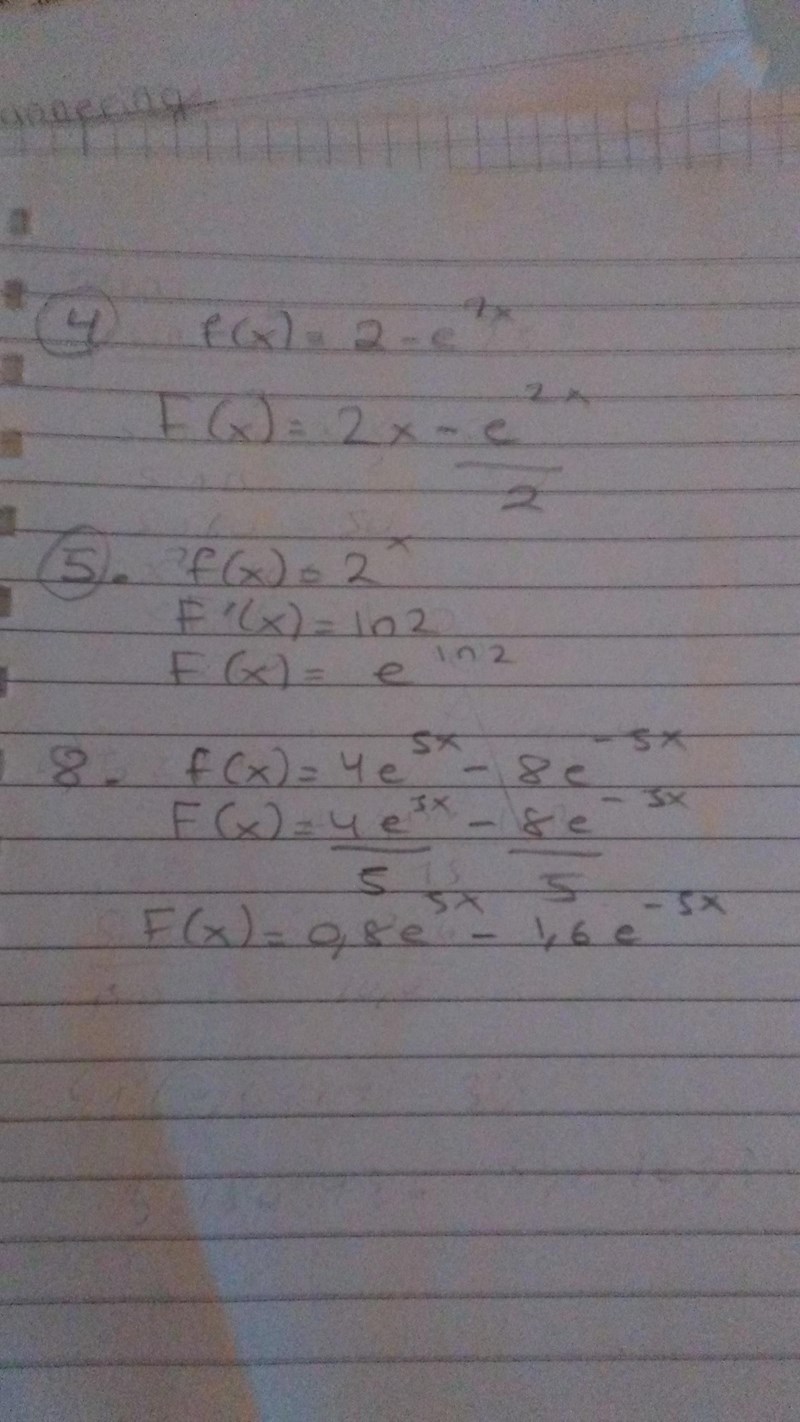 4 f(x) = 2 - e^2x
F(x) = 2x - e^2x / 2
5. f(x) = 2^x
F'(x) = ln2
F(x) = e^ln2
8. f(x) = 4e^5x - 8e^-5x
F(x) = 4e^5x / 5 - 8e^-5x / 5
F(x) = 0,8e^5x - 1,6e^-5x